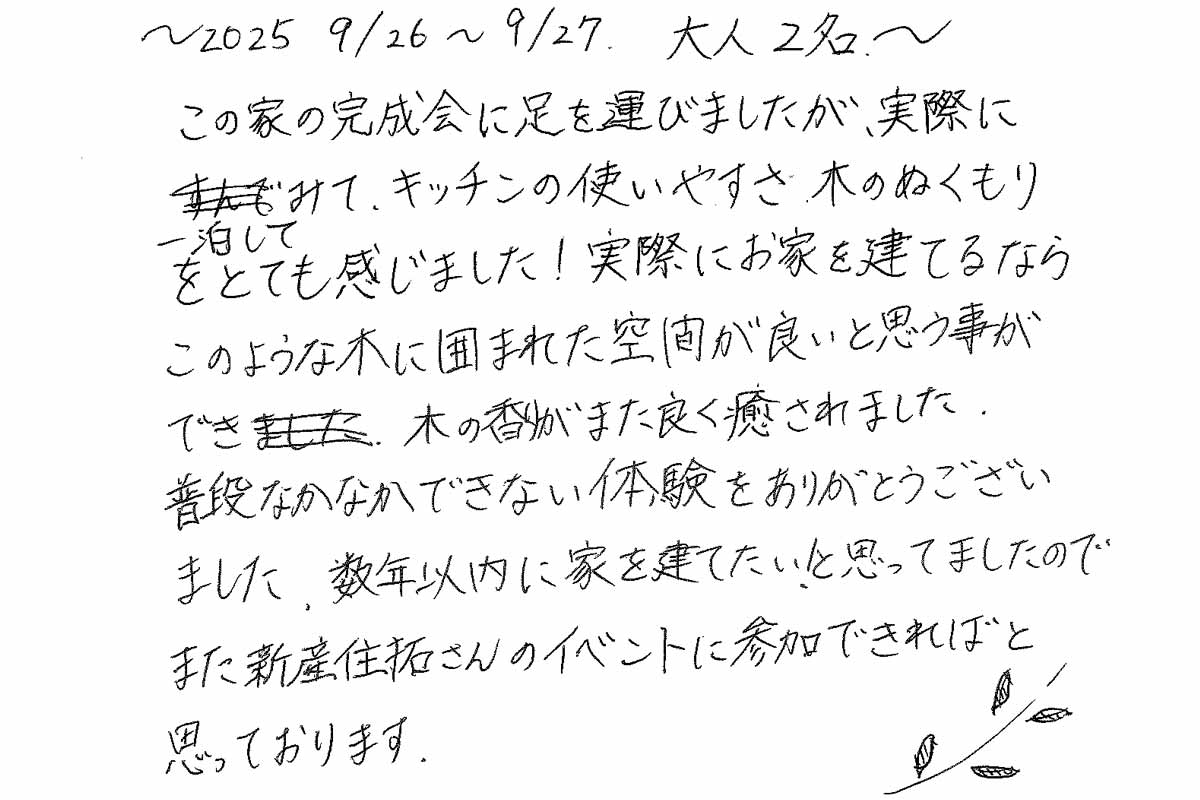 〜2025 9/26〜9/27. 大人2名.〜
この家の完成会に足を運びましたが、実際に
すんでみて、キッチンの使いやすさ、木のぬくもり
一泊して
をとても感じました！実際にお家を建てるなら
このような木に囲まれた空間が良いと思う事が
できました. 木の香りがまた良く癒されました.
普段なかなかできない体験をありがとうござい
ました、数年以内に家を建てたい！と思ってましたので
また新産住拓さんのイベントに参加できればと
思っております.